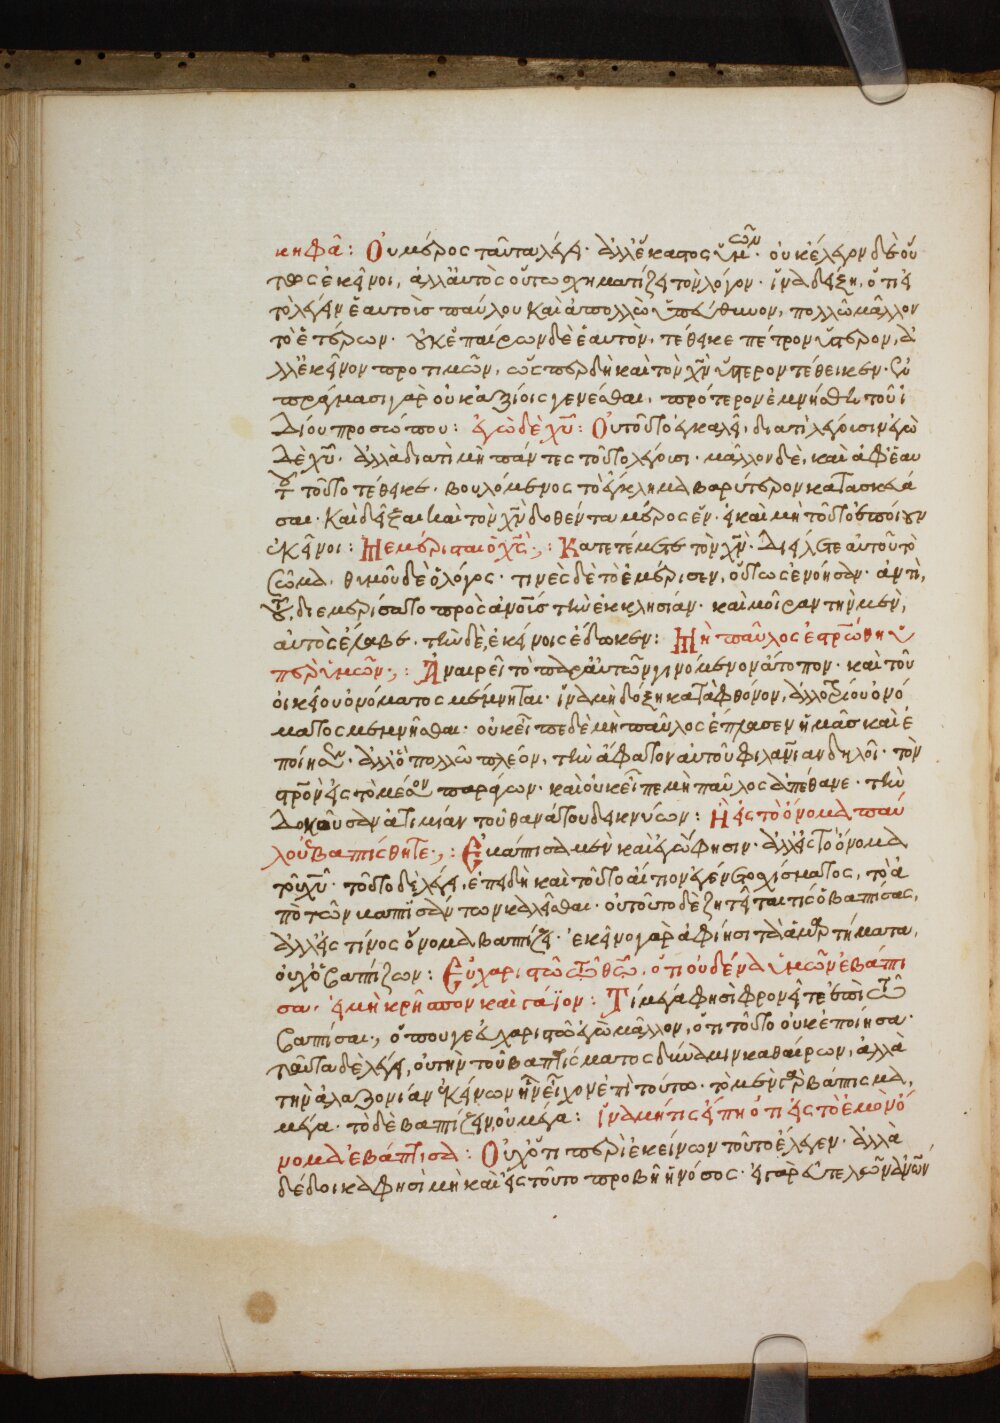 κηφᾶ: Οὐ μέρος ταῦτα λέγει· ἀλλ' ἕκαστος ὑμῶν· οὐκ ἔλεγον δὲ οὕ
τως ἐκεῖνοι, ἀλλ' αὐτὸς οὕτω σχηματίζει τὸν λόγον· ἵνα δείξη, ὅτι εἰ
τὸ λέγειν ἑαυτοῖς παύλου καὶ ἀπολλὼ ὑπεύθυνον, πολλῶ μᾶλλον
τὸ ἑτέρων· οὐκ ἐπαίρων δὲ ἑαυτὸν, τέθεικε πέτρον ὕστερον, ἀ
λλ' ἐκεῖνον προτιμῶν, ὥσπερ δὴ καὶ τὸν χν ὕστερον τέθεικεν· ἐν
πράγμασι γὰρ οὐκ ἀξίοις γενέσθαι, πρότερον ἐμνήσθη τοῦ ἰ
δίου προσώπου: ἐγὼ δὲ χυ: Οὐ τοῦτο ἐγκαλεῖ, διατί λέγοισιν ἐγὼ
δὲ χυ· ἀλλὰ διατί μὴ πάντες τοῦτο λέγοισι· μᾶλλον δὲ, καὶ ἀφ' ἑαυ
τοῦ τοῦτο τέθεικε· βουλόμενος τὸ ἔγκλημα βαρύτερον κατασκευά
σαι· καὶ δεῖξαι καὶ τὸν χν δοθέντα μέρος ἕν· εἰ καὶ μὴ τοῦτο ἐποίουν
ἐκεῖνοι: Μεμέρισται ὁ χς·,: Κατετέμετε τὸν χν· διείλετε αὐτοῦ τὸ
σῶμα· θυμοῦ δὲ ὁ λόγος· τινὲς δὲ τὸ ἐμέρισεν, οὕτως ἐνόησαν· ἀντὶ,
τοῦ, διεμερίσατο πρὸς ανοις τὴν ἐκκλησίαν· καὶ μοῖραν τὴν μὲν,
αὐτὸς ἔλαβε· τὴν δὲ, ἐκείνοις ἔδωκεν: Μὴ παῦλος ἐστρώθη ὑ
πὲρ ὑμῶν·,: Ἀναιρεῖ τὸ παρ' αὐτῶν γινόμενον ἄτοπον· καὶ τοῦ
οἰκείου ὀνόματος μέμνηται· ἵνα μὴ δόξη κατὰ φθόνον, ἀλλοτρίου ὀνό
ματος μεμνῆσθαι· οὐκ εἶπε δὲ μὴ παῦλος ἔπλασεν ἡμᾶς καὶ ἐ
ποίησεν· ἀλλ' ὃ πολλῶ πλέον, τὴν ἄφατον αὐτοῦ φιλανίαν δηλοῖ· τὸν
στρον εἰς τὸ μέσον παράγων· καὶ οὐκ εἶπε μὴ παῦλος ἀπέθανε· τὴν
δοκοῦσαν ἀτιμίαν τοῦ θανάτου δεικνύων: Ἢ εἰς τὸ ὄνομα παύ
λου ἐβαπτίσθητε·,: Ἐβάπτισα μὲν καὶ ἐγὼ φησιν· ἀλλ' εἰς τὸ ὄνομα
τοῦ χυ· τοῦτο δὲ λέγει, ἐπειδὴ καὶ τοῦτο αἴτιον ἐγένετο σχίσματος, τὸ ἀ
πὸ τῶν βαπτισάντων καλεῖσθαι· οὐ τοῦτο δὲ ζητεῖται τίς ὁ βαπτίσας,
ἀλλ' εἰς τίνος ὄνομα βαπτίζει· ἐκεῖνο γὰρ ἀφίησι τὰ ἁμαρτήματα,
οὐχ ὁ βαπτίζων: Εὐχαριστῶ τῶ θω, ὅτι οὐδένα ὑμῶν ἐβάπτι
σα, εἰ μὴ κρῆσπον καὶ γάϊον: Τί μέγα φησὶ φρονεῖτε ἐπὶ τῶ
βαπτίσαι, ὅπου γε εὐχαριστῶ ἐγὼ μᾶλλον, ὅτι τοῦτο οὐκ ἐποίησα·
ταῦτα δὲ λέγει, οὐ τὴν τοῦ βαπτίσματος δύναμιν καθαίρων, ἀλλὰ
τὴν ἀλαζονίαν ἐκείνων ἣν εἶχον ἐπὶ τούτω· τὸ μὲν γὰρ βάπτισμα,
μέγα· τὸ δὲ βαπτίζειν, οὐ μέγα: ἵνα μή τις εἴπη ὅτι εἰς τὸ ἐμὸν ὄ
νομα ἐβάπτισα: Οὐχ ὅτι περὶ ἐκείνων τοῦτο ἔλεγεν· ἀλλὰ
δέδοικα φησὶ μὴ καὶ εἰς τοῦτο προβῆ ἡ νόσος· εἰ γὰρ εὐτελῶν ανων